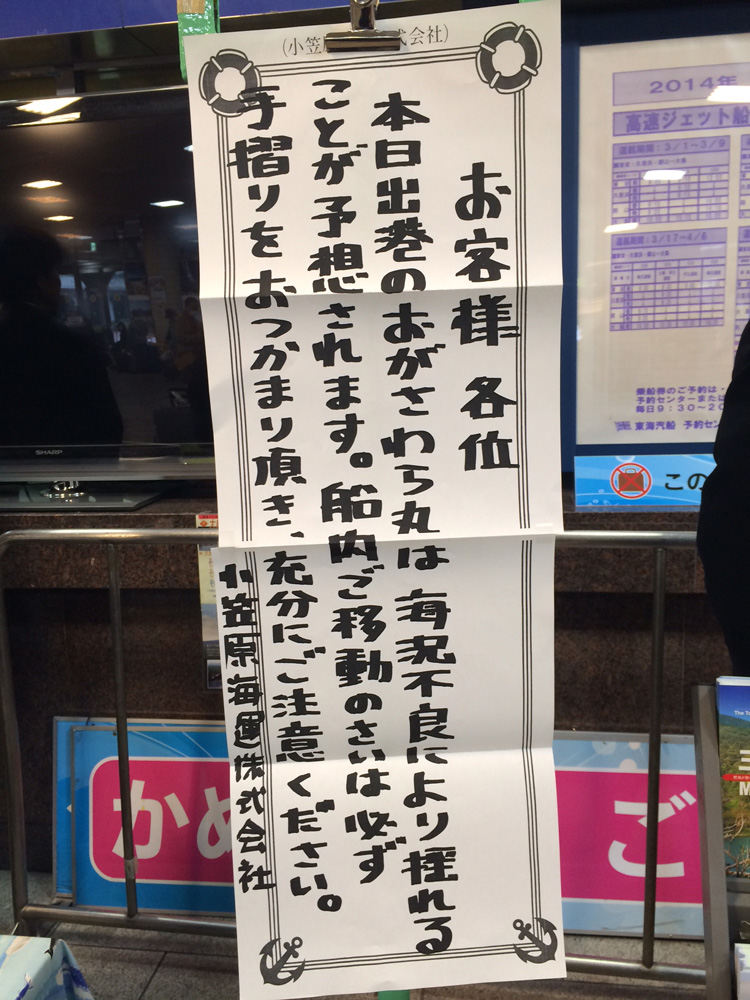 お客様 各位
本日出港のおがさわら丸は 海況不良により揺れる
ことが予想されます。船内ご移動のさいは必ず
手摺りをおつかまり頂き、充分にご注意ください。
小笠原海運株式会社
(小笠
式会社)
SHARP
2014年
高速ジェット船
運航期間:3/1~3/9
運航期間:3/17~4/6
乗船券のご予約は
予約センターまた
毎日9:30~20
東海汽船 予約セン
この
か
ご